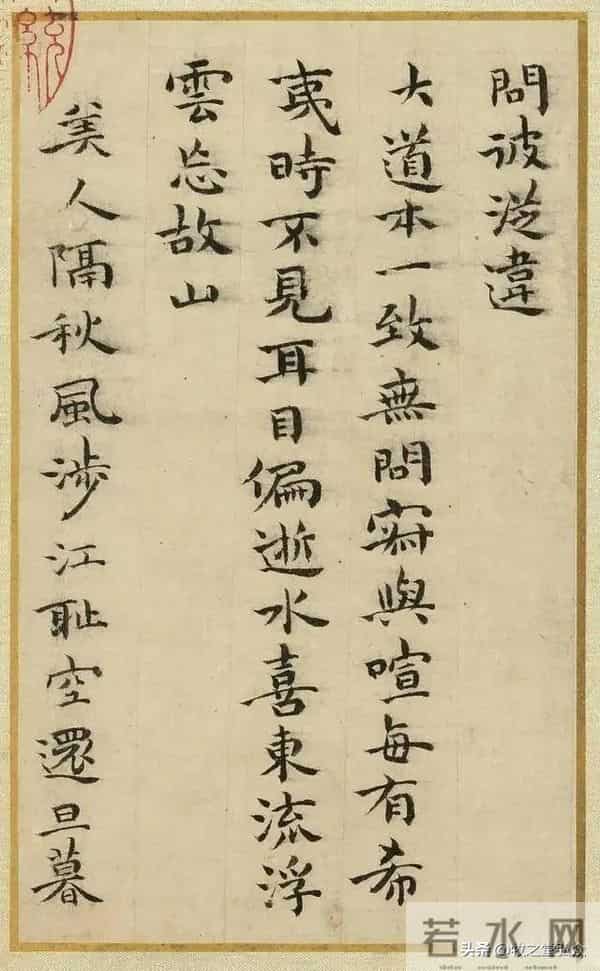 問彼從違
大道本一致無問寂與喧每有希
夷時不見耳目偏逝水喜東流浮
雲忘故山
美人隔秋風涉江恥空還旦暮
若水网
头条@牧之野